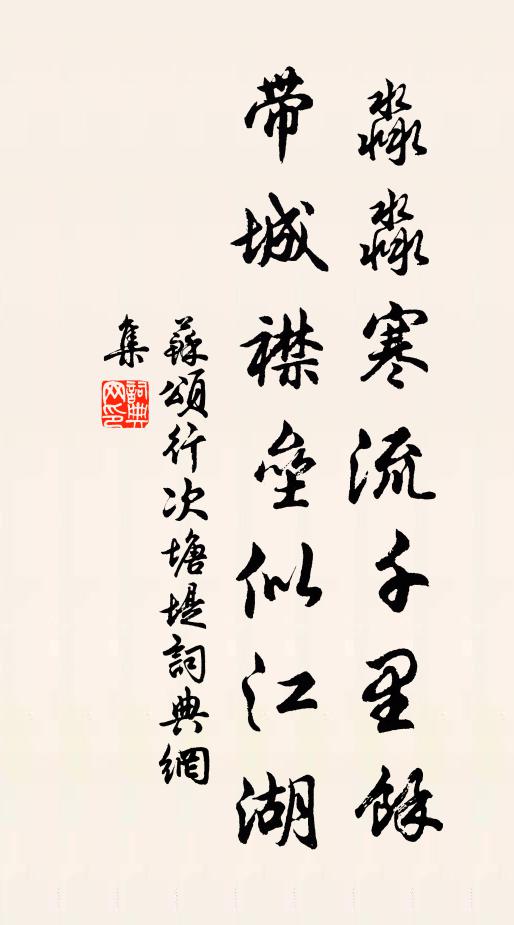 淼淼寒流千里餘
帶城襟壘似江湖
蘇頌行次塘堤詞典網
集
詞典
网印